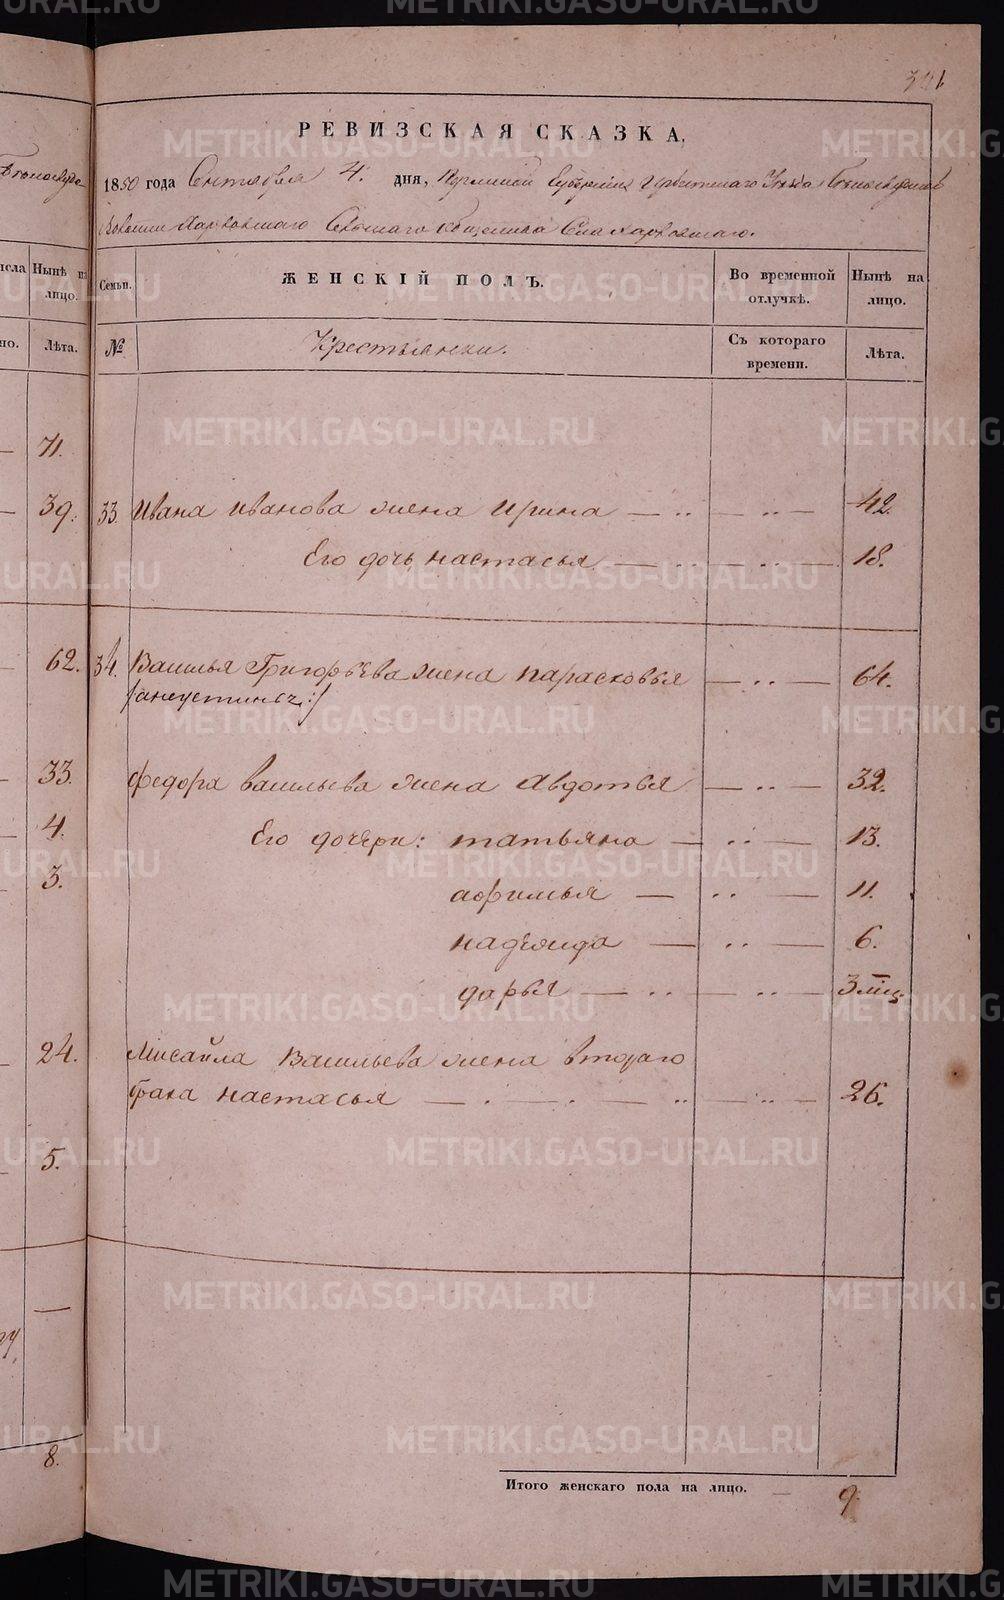 METRIKI.GASO-URAL.RU
РЕВИЗСКАЯ СКАЗКА,
1850 года Сентября 4. дня, Пермской Губернии Ирбитскаго Уезда
Волости Сельскаго Общества Села
Семьи.
ЖЕНСКІЙ ПОЛЪ.
Во временной отлучкѣ.
Нынѣ на лицо.
№
Крестьянки.
Съ котораго времени.
Лѣта.
Нынѣ на лицо.
Лѣта.
71.
39. 33. Ивана Иванова жена Ирина — .. — .. — 42.
Его дочь настасья — .. — .. — 18.
62. 34. Василья Григорьева жена парасковья — .. — 64.
33. федора васильева жена Авдотья — .. — 32.
4. Его дочери: татьяна — .. — 13.
3. афимья — .. — 11.
надежда — .. — 6.
дарья — .. — .. — 3 мѣс.
24. Мисаила Васильева жена втораго
брака настасья — . — . — .. — .. — 26.
5.
8.
Итого женскаго пола на лицо. — 9.